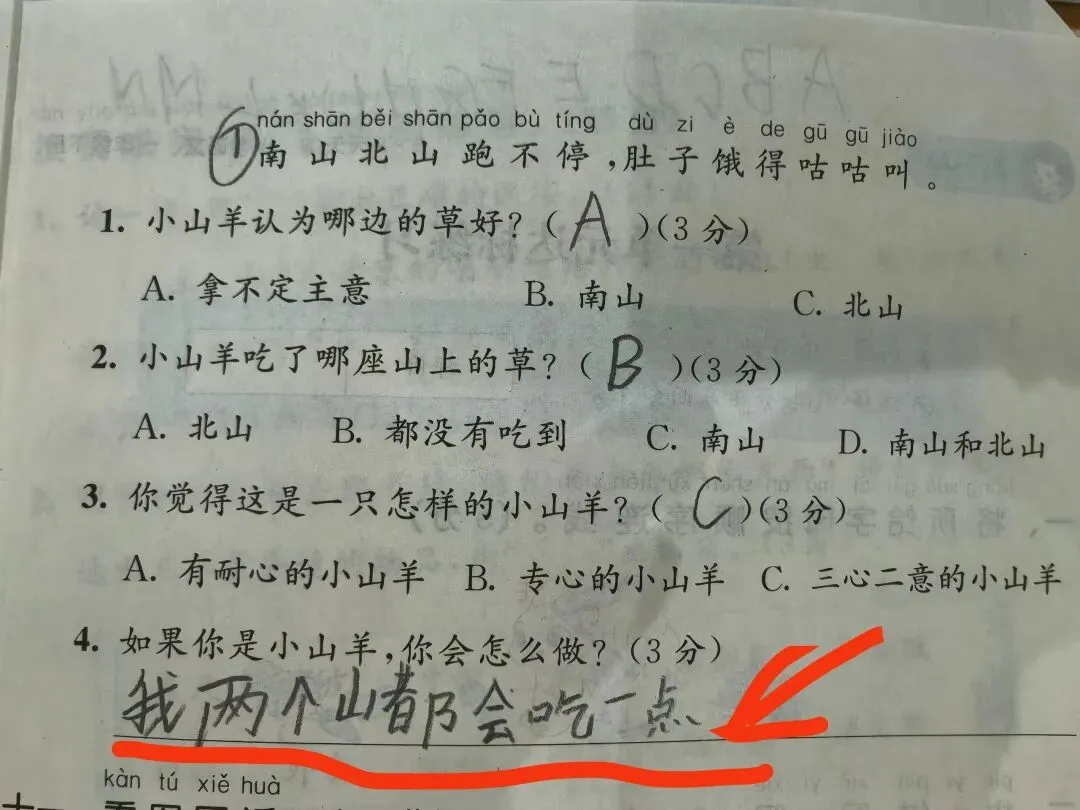 nán shān běi shān pǎo bù tíng dù zi è de gū gū jiào
①南山北山跑不停,肚子饿得咕咕叫。
1. 小山羊认为哪边的草好?( A )(3分)
A. 拿不定主意 B. 南山 C. 北山
2. 小山羊吃了哪座山上的草?( B )(3分)
A. 北山 B. 都没有吃到 C. 南山 D. 南山和北山
3. 你觉得这是一只怎样的小山羊?( C )(3分)
A. 有耐心的小山羊 B. 专心的小山羊 C. 三心二意的小山羊
4. 如果你是小山羊,你会怎么做?(3分)
我两个山都会吃一点
kàn tú xiě huà